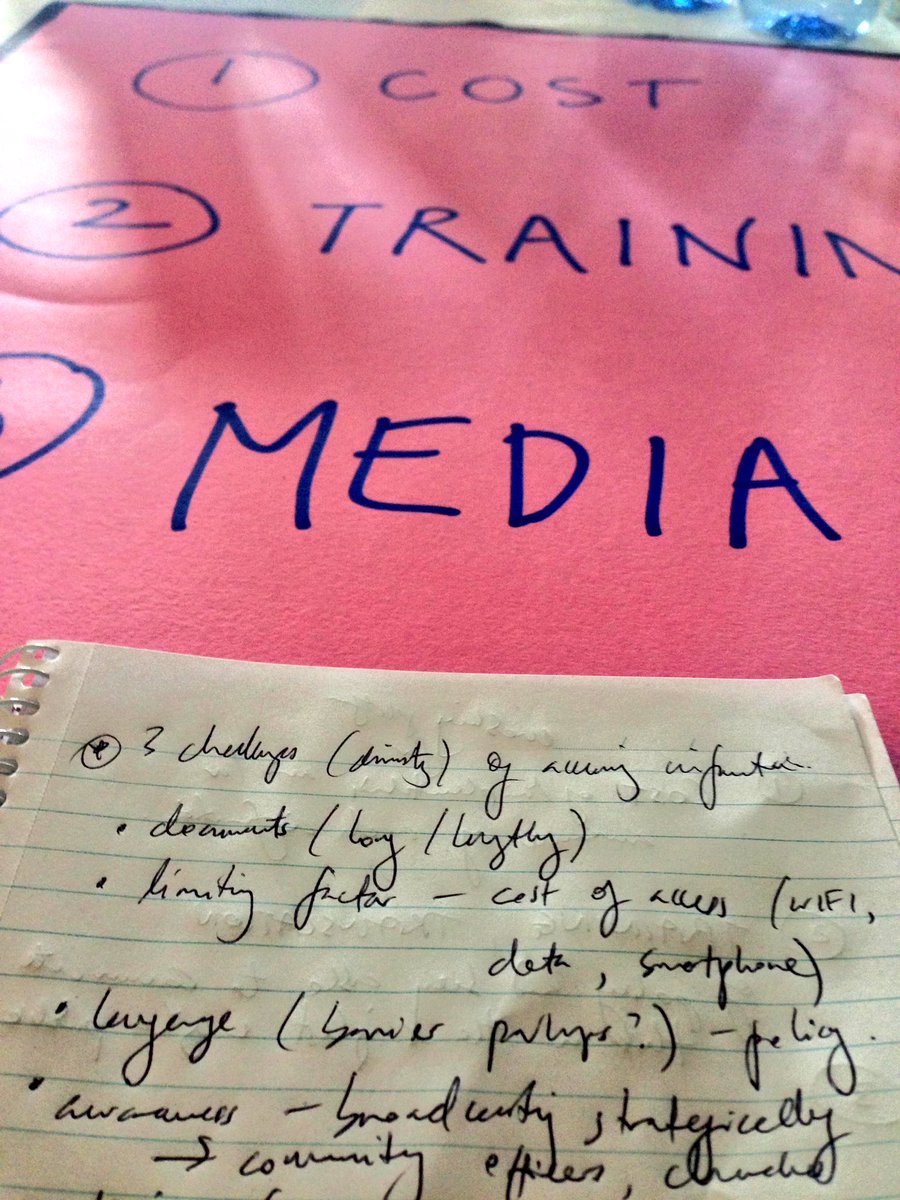 1 COST
2 TRAININ
MEDIA
3 challenges (diversity) of accessing information.
• documents (long / lengthy)
• limiting factor – cost of access (WIFI,
data, smartphone)
• language (barrier perhaps?) – policy.
• awareness – broadcasting strategically
→ community officers, churches